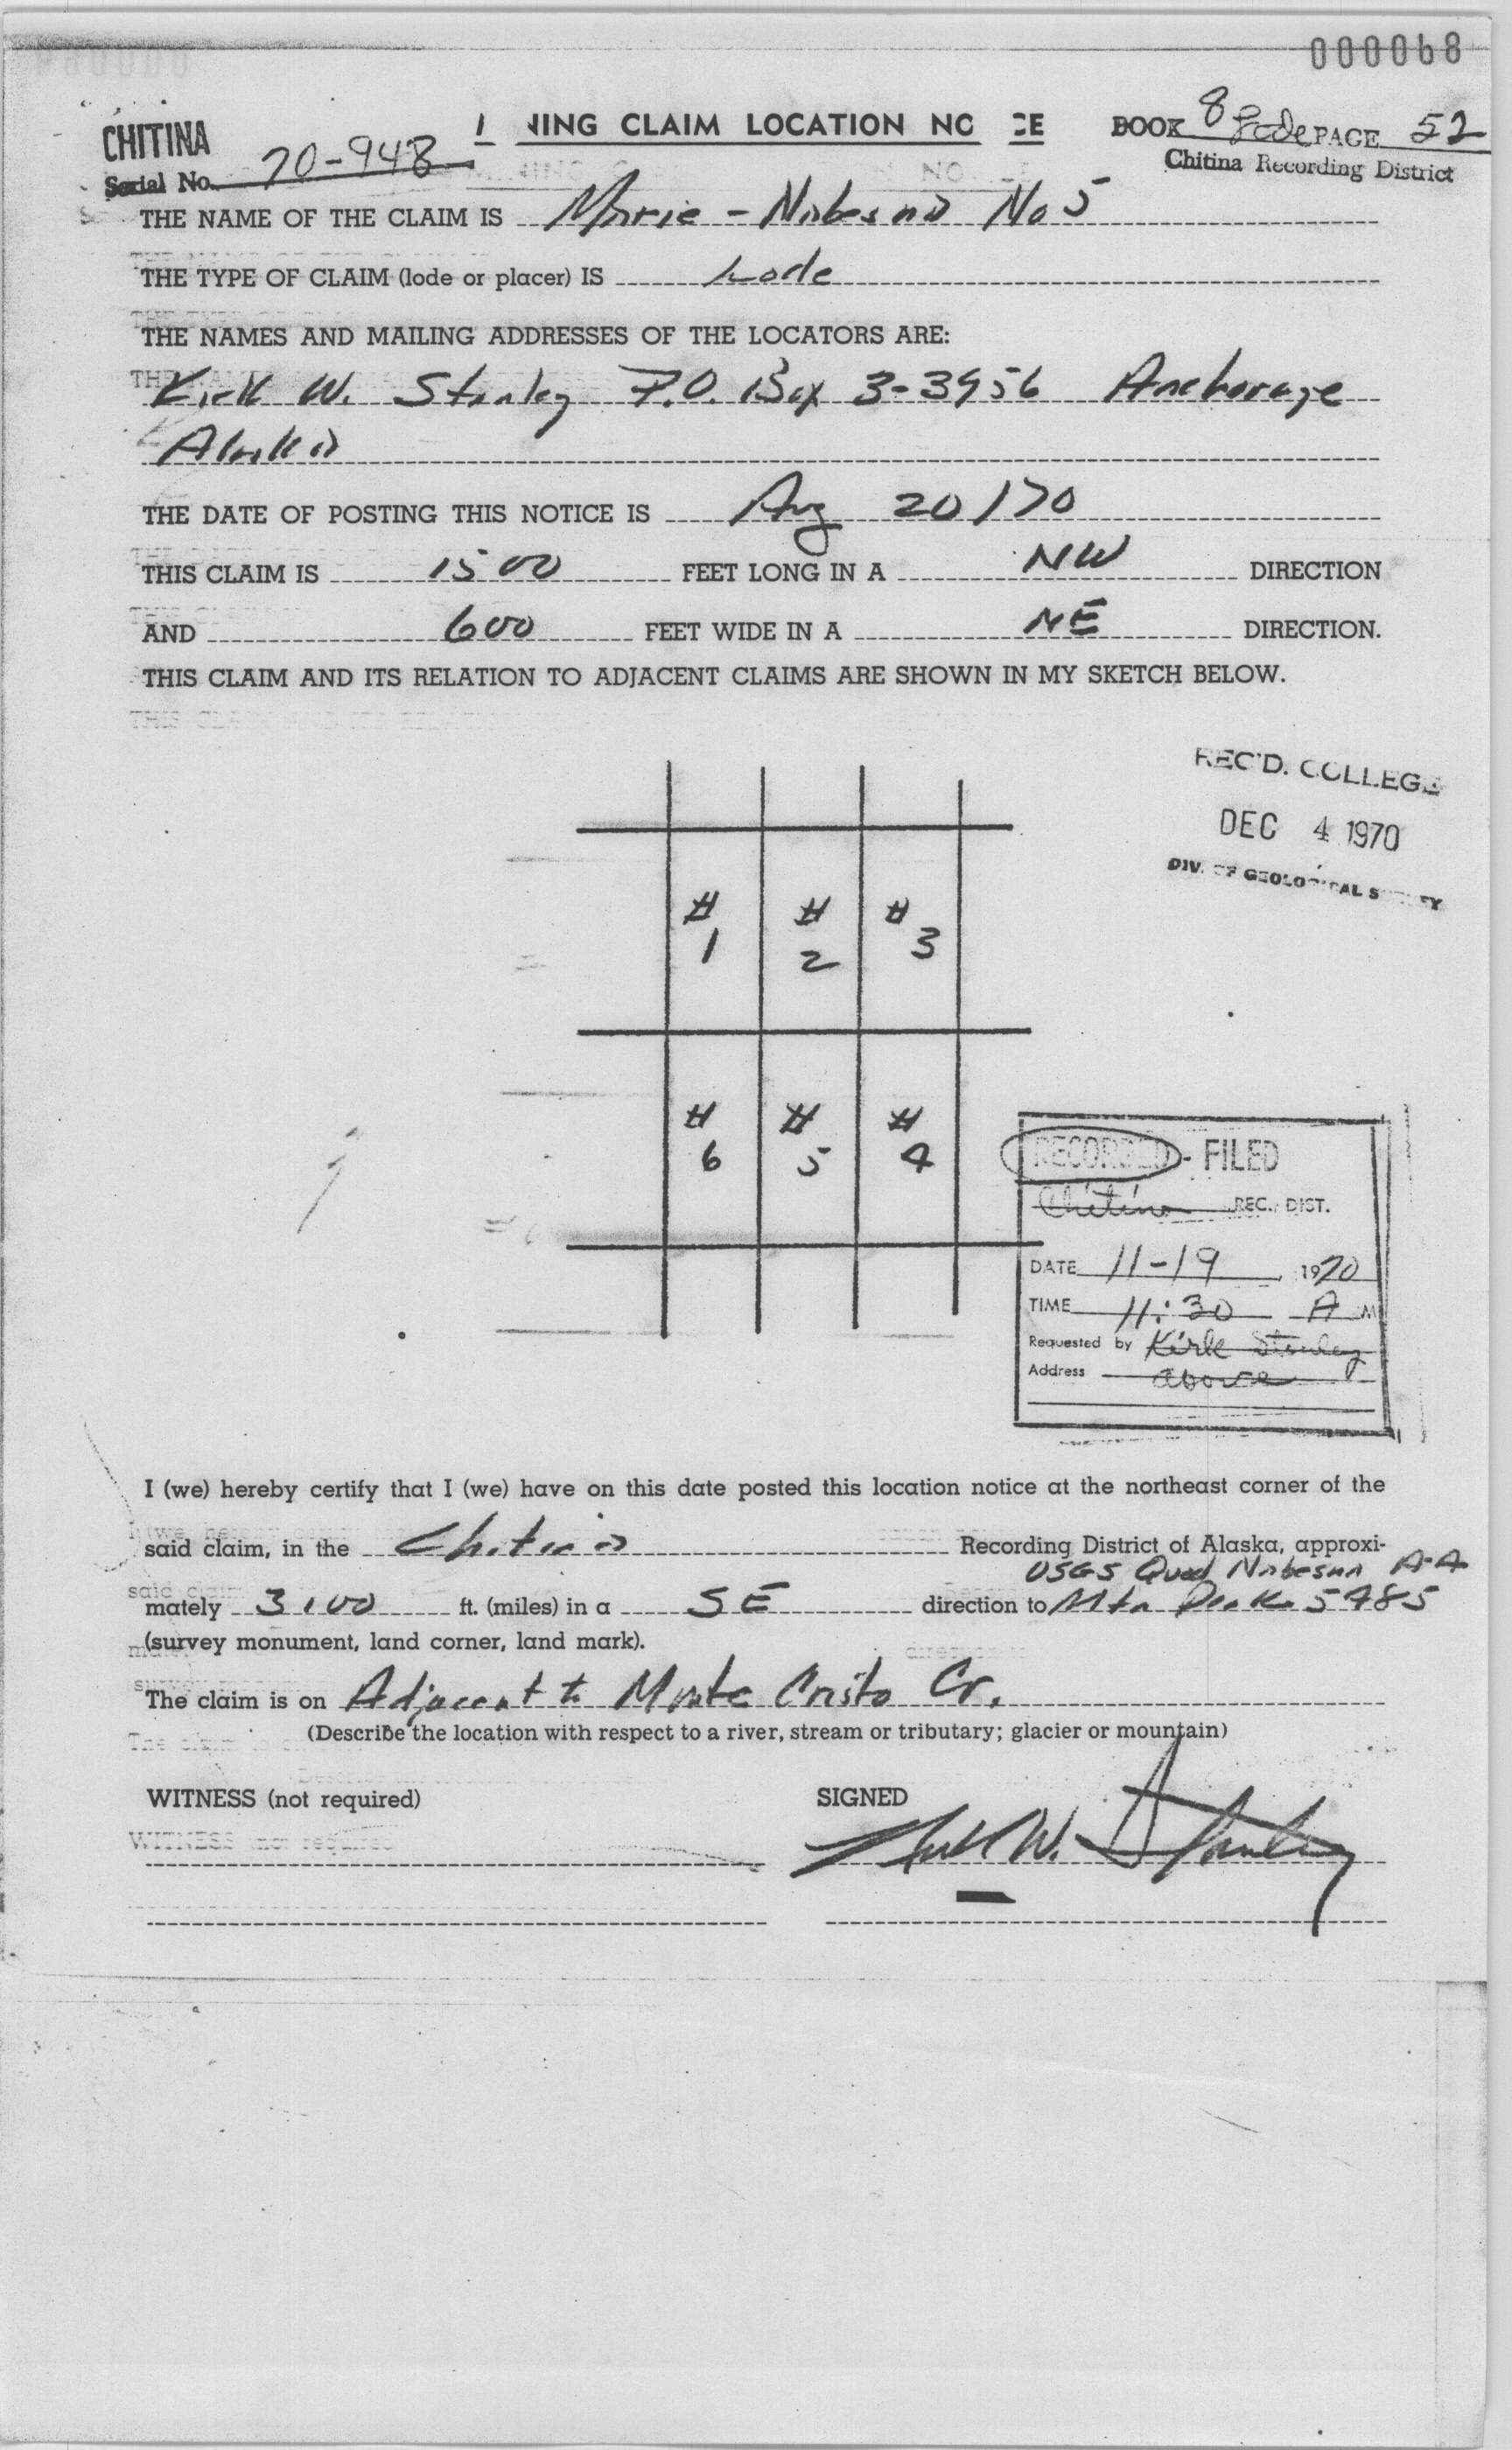 000068
CHITINA
Serial No. 70-948
NING CLAIM LOCATION NO CE
BOOK 8 Lode PAGE 52
Chitina Recording District
THE NAME OF THE CLAIM IS Marie - Nabesna No 5
THE TYPE OF CLAIM (lode or placer) IS Lode
THE NAMES AND MAILING ADDRESSES OF THE LOCATORS ARE:
Kirk W. Stanley P.O. Box 3-3956 Anchorage
Alaska
THE DATE OF POSTING THIS NOTICE IS Aug 20/70
THIS CLAIM IS 1500 FEET LONG IN A NW DIRECTION
AND 600 FEET WIDE IN A NE DIRECTION.
THIS CLAIM AND ITS RELATION TO ADJACENT CLAIMS ARE SHOWN IN MY SKETCH BELOW.
REC'D. COLLEGE
DEC 4 1970
DIV. OF GEOLOGICAL SURVEY
# # #
1 2 3
# # #
6 5 4
RECORDED - FILED
Chitina REC. DIST.
DATE 11-19 1970
TIME 11:30 A M
Requested by Kirk Stanley
Address above
I (we) hereby certify that I (we) have on this date posted this location notice at the northeast corner of the
said claim, in the Chitina Recording District of Alaska, approxi-
USGS Quad Nabesna A-4
mately 3100 ft. (miles) in a SE direction to Mtn Peak 5985
(survey monument, land corner, land mark).
The claim is on Adjacent to Monte Cristo Cr.
(Describe the location with respect to a river, stream or tributary; glacier or mountain)
WITNESS (not required)
SIGNED
Kirk W. Stanley